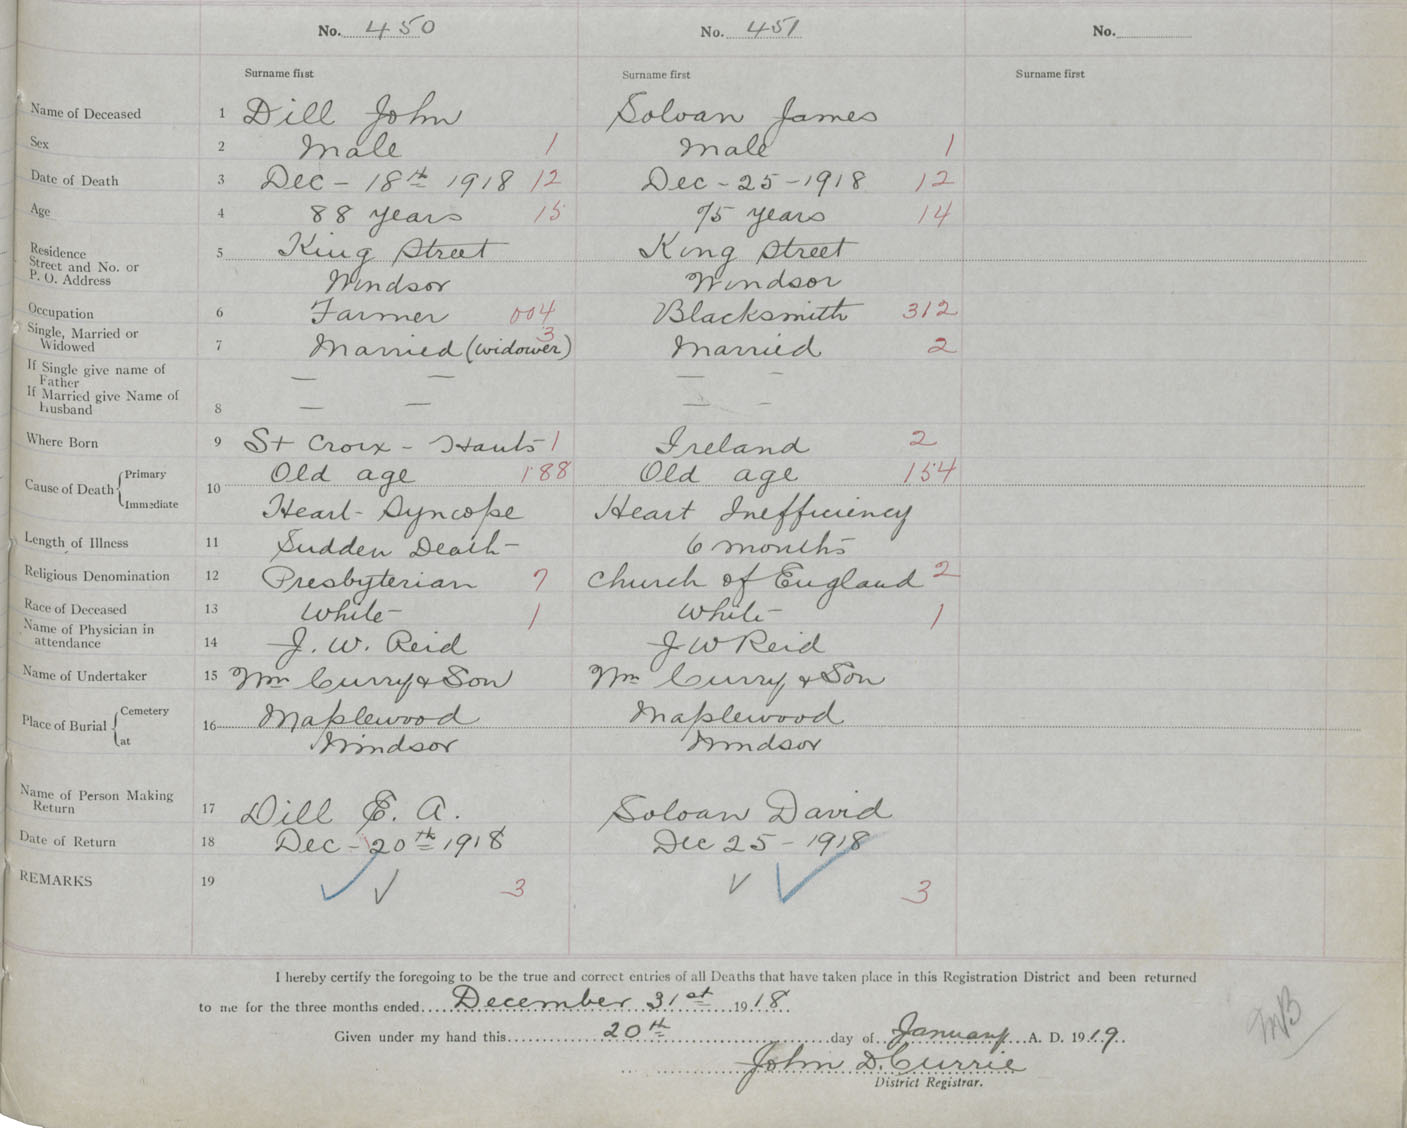 No. 450 No. 451 No.
Surname first Surname first Surname first
Name of Deceased 1 Dill John Soloan James
Sex 2 Male 1 Male 1
Date of Death 3 Dec - 18th 1918 12 Dec - 25 - 1918 12
Age 4 88 years 15 75 years 14
Residence 5 King Street King Street
Street and No. or
P. O. Address Windsor Windsor
Occupation 6 Farmer 004 Blacksmith 312
Single, Married or 3
Widowed 7 Married (widower) Married 2
If Single give name of — — — —
Father
If Married give Name of
Husband 8 — — — —
Where Born 9 St Croix - Hants 1 Ireland 2
Cause of Death { Primary 10 Old age 188 Old age 154
Immediate Heart Syncope Heart Inefficiency
Length of Illness 11 Sudden Death - 6 months
Religious Denomination 12 Presbyterian 7 Church of England 2
Race of Deceased 13 White 1 White 1
Name of Physician in
attendance 14 J. W. Reid J W Reid
Name of Undertaker 15 Wm Curry & Son Wm Curry & Son
Place of Burial { Cemetery 16 Maplewood Maplewood
at Windsor Windsor
Name of Person Making
Return 17 Dill E. A. Soloan David
Date of Return 18 Dec - 20th 1918 Dec 25 - 1918
REMARKS 19 ✓ ✓ 3 ✓ ✓ 3
I hereby certify the foregoing to be the true and correct entries of all Deaths that have taken place in this Registration District and been returned
to me for the three months ended December 31st 1918
Given under my hand this 20th day of January A. D. 1919.
John D. Currie
District Registrar.
MB